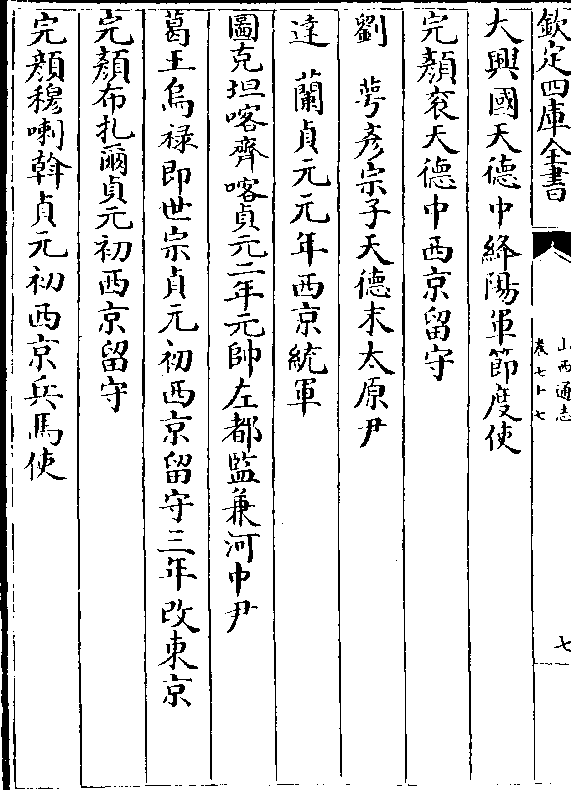 欽定四庫全書
山西通志
卷七十七
七
大興國天德中絳陽軍節度使
完顏袞天德中西京留守
劉萼彥宗子天德末太原尹
達蘭貞元元年西京統軍
圖克坦喀齊喀貞元二年元帥左都監兼河中尹
葛王烏祿即世宗貞元初西京留守三年改東京
完顏布扎爾貞元初西京留守
完顏穆喇斡貞元初西京兵馬使